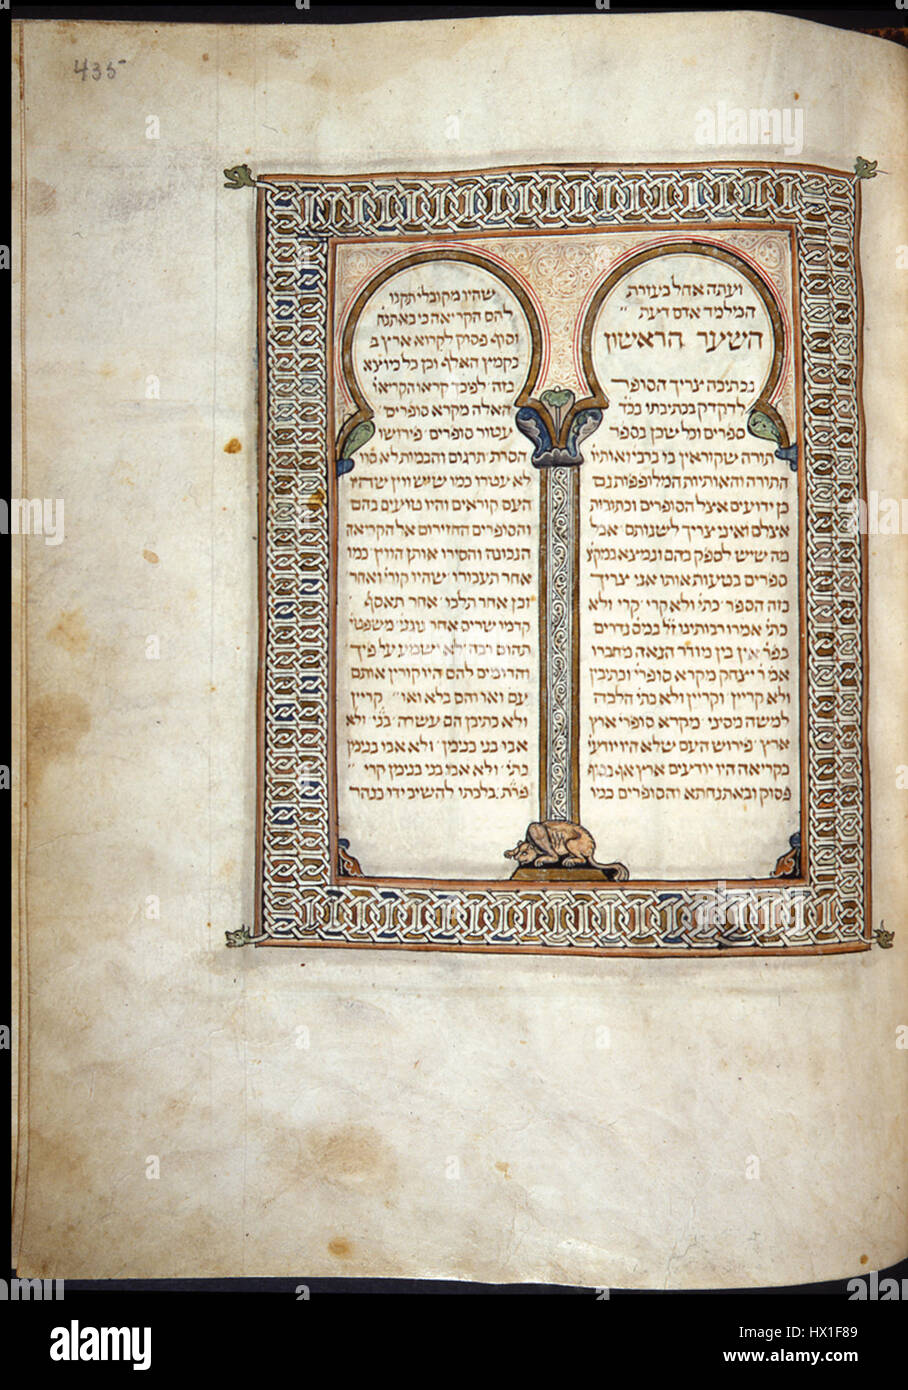 435
ועתה אחל בעזרת
המלמד אדם דעת
השער הראשון
בכתיבה יצריך הסופר
לדקדק בכתיבתו בכל
ספרים וכל שכן בספר
תורה שקוראין בו ברבי ואותיו
התורה והאותיות המלופפות גם
כן ידועים אצל הסופרים וכתובות
אצלם ואיני צריך לשנותם אבל
מה שיש לספק בהם ונמצא במקצ
ספרים בטעות אותו אני צריך
בזה הספר כתי ולא קרי קרי ולא
כתי אמרו רבותינו זל במס נדרים
בפר אין בין מודר הנאה מחברו
אמ ר יצחק מקרא סופרי וכתיבן
ולא קריין וקריין ולא כתי הלכה
למשה מסיני מקרא סופרי ארץ
ארץ פירוש העם שלא היו יודעי
בקריאה היו יודעים ארץ אף בסוף
פסוק ובאתנחתא והסופרים כגיו
שהיו מקובלי תקנו
להם הקריאה כי באתנח
וסוף פסוק לקרוא ארץ ב
בקמץ האלף וכן כל כיוצא
בזה לפיכך קראו הקריאו
האלה מקרא סופרים
עטור סופרים פירושו
הסרת תרגום והבמות לא סוי
לא עטרו כמו שיש ווין שהיו
העם קוראים והיו טועים בהם
והסופרים החזירום אל הקריאה
הנכונה והסירו אותן הווין כמו
אחר תעבורו שהיו קורי ואחר
וכן אחר תלכו אחר תאסף
קדמו שרים אחר נוגנ משפטי
תהום רבה לא ישמע על פיך
והדומים להם היו קורין אותם
עם ואו והם בלא ואו קריין
ולא כתיבן הם עשרה בני ולא
אבו בני בנימן ולא אבו בנימן
כתי ולא אבו בני בנימן קרי
פרת בלכתו להשיב ידו בנהר
alamy
Image ID: HX1F89
www.alamy.com